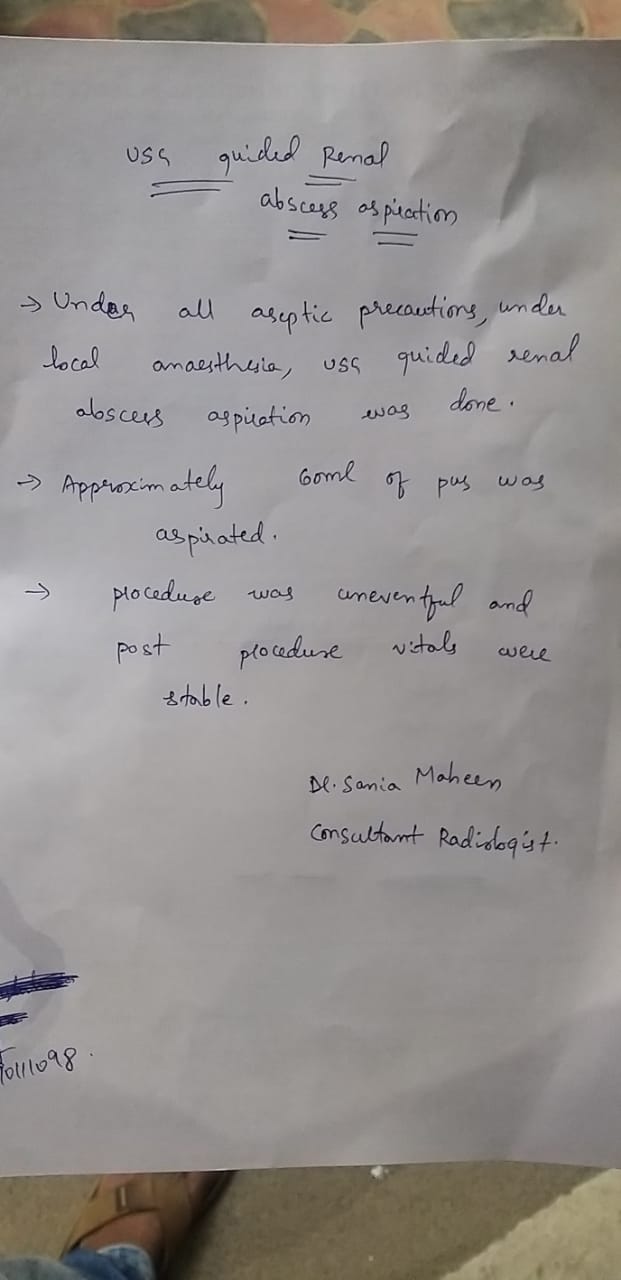 USG guided Renal
abscess aspiration
→ Under all aseptic precautions, under
local anaesthesia, USG guided renal
abscess aspiration was done.
→ Approximately 60ml of pus was
aspirated.
→ procedure was uneventful and
post procedure vitals were
stable.
Dr. Sania Maheen
Consultant Radiologist.